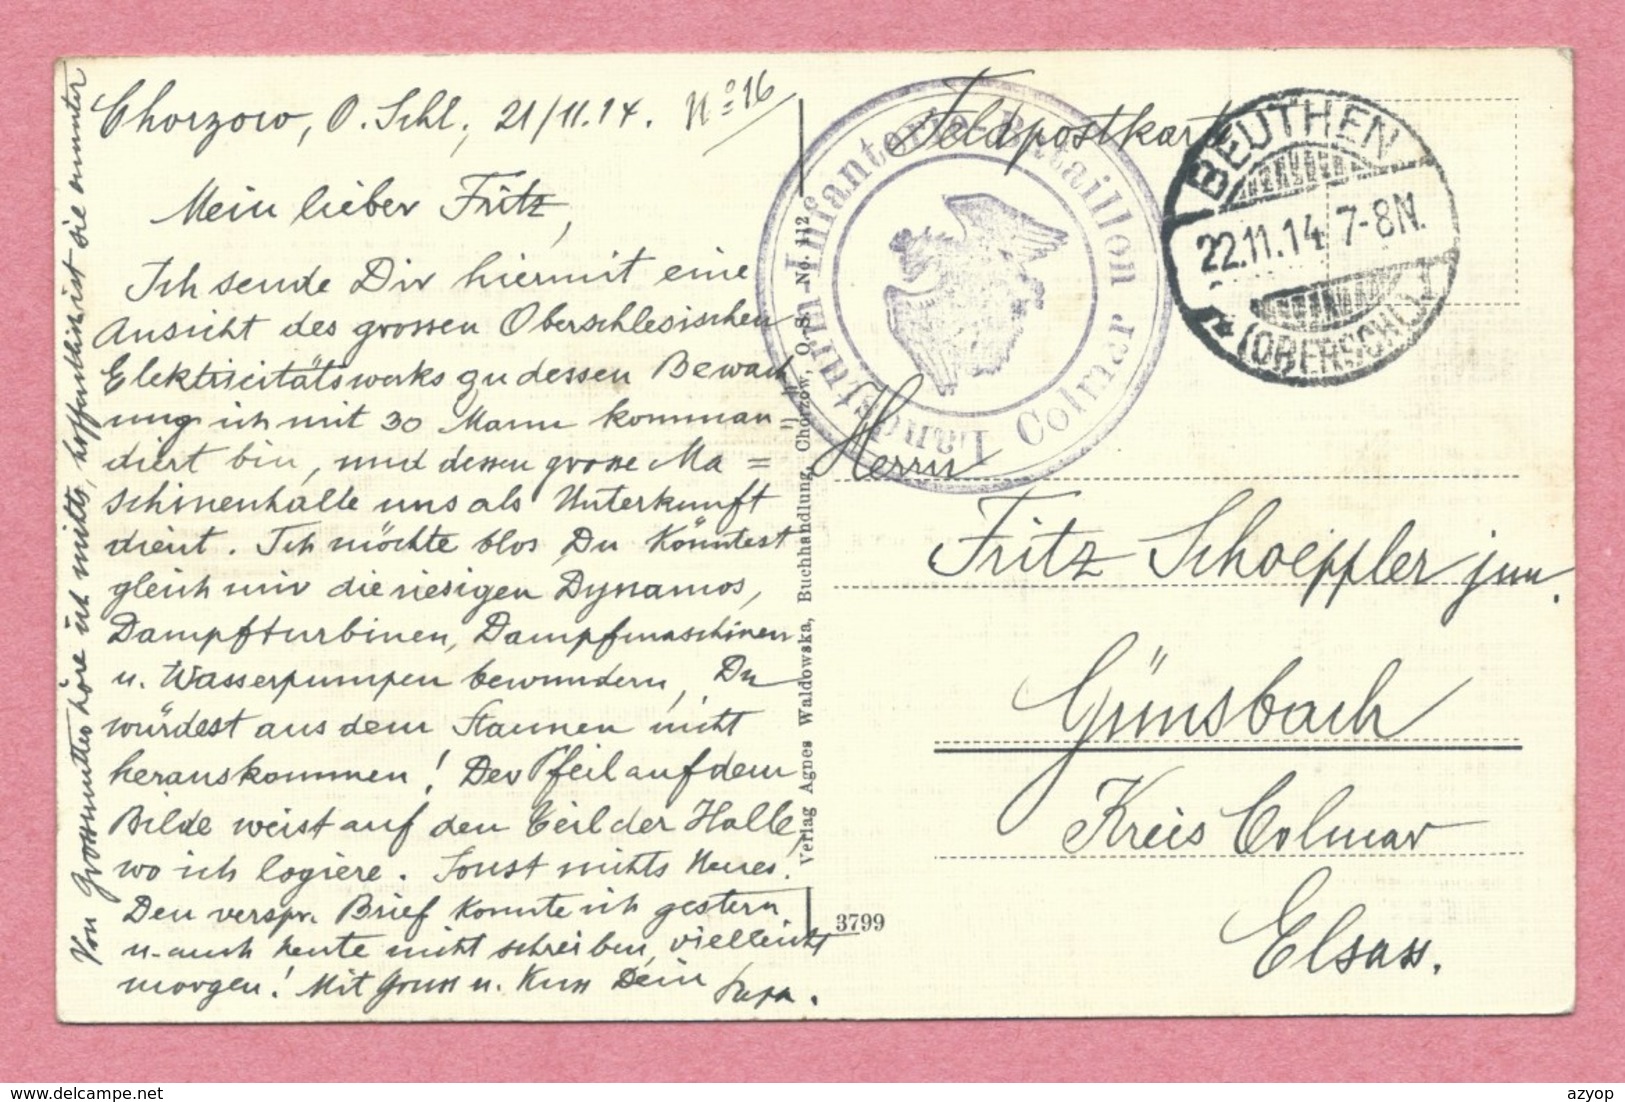 Chorzow, O. Schl., 21/11.14. No 16
Mein lieber Fritz,
Ich sende Dir hiermit eine
Ansicht des grossen Oberschlesischen
Elektricitätswerks zu dessen Bewach
ung ich mit 30 Mann komman=
diert bin, und dessen grosse Ma=
schinenhalle uns als Unterkunft
dient. Ich möchte blos Du könntest
gleich mir die riesigen Dynamos,
Dampfturbinen, Dampfmaschinen
u. Wasserpumpen bewundern, Du
würdest aus dem Staunen nicht
herauskommen! Der Pfeil auf dem
Bilde weist auf den Teil der Halle,
wo ich logiere. Sonst nichts Neues.
Den verspr. Brief konnte ich gestern
u. auch heute nicht schreiben, vielleicht
morgen! Mit Gruss u. Kuss Dein Papa.
Von Grossmutter höre ich nichts, hoffentlich ist sie munter
Verlag Agnes Waldowska, Buchhandlung, Chorzow, O.-S. No. 112
3799
Feldpostkarte
Landsturm-Infanterie-Bataillon
Colmar
BEUTHEN
22.11.14 7-8N.
(OBERSCHL.)
Herrn
Fritz Schoeppler jun.
Günsbach
Kreis Colmar
Elsass.
delcampe.net
azyop